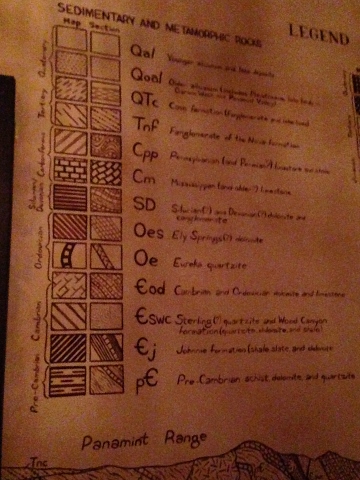 SEDIMENTARY AND METAMORPHIC ROCKS
LEGEND
Map Section
Quaternary
Qal Younger alluvium and lake deposits
Qoal Older alluvium
QTc Coso formation
Tertiary
Tnf Fanglomerate of the Nova formation
Carboniferous
Cpp Pennsylvanian (and Permian?) limestone
Cm Mississippian (and older?) limestone
Silurian
Devonian
SD Silurian(?) and Devonian(?) dolomite and
Ordovician
Oes Ely Springs(?) dolomite
Oe Eureka quartzite
Cambrian
Єod Cambrian and Ordovician dolomite and limestone
Єswc Sterling(?) quartzite and Wood Canyon
formation (quartzite, dolomite, and shale)
Єj Johnnie formation (shale, slate and dolomite
Pre-Cambrian
pЄ Pre-Cambrian schist, dolomite, and quartzite
Panamint Range
Tnc